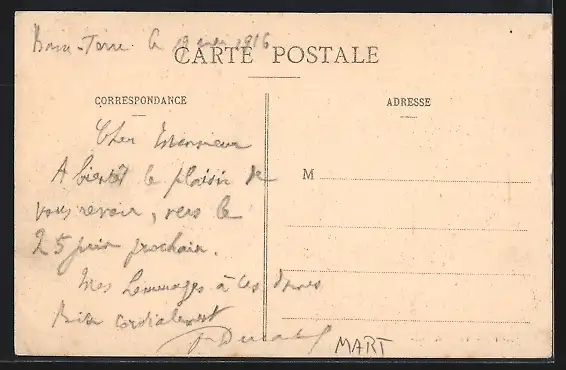 le 19 1916
CARTE POSTALE
CORRESPONDANCE
ADRESSE
Cher Monsieur
A bientôt le plaisir de
vous revoir, vers le
25 juin prochain.
Mes hommages à ces dames
Bien cordialement
M
MART